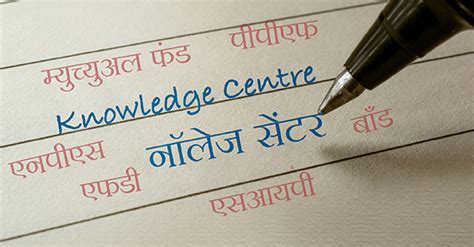 म्युच्युअल फंड पीपीएफ
Knowledge Centre
नॉलेज सेंटर बाँड
एनपीएस
एफडी
एसआयपी